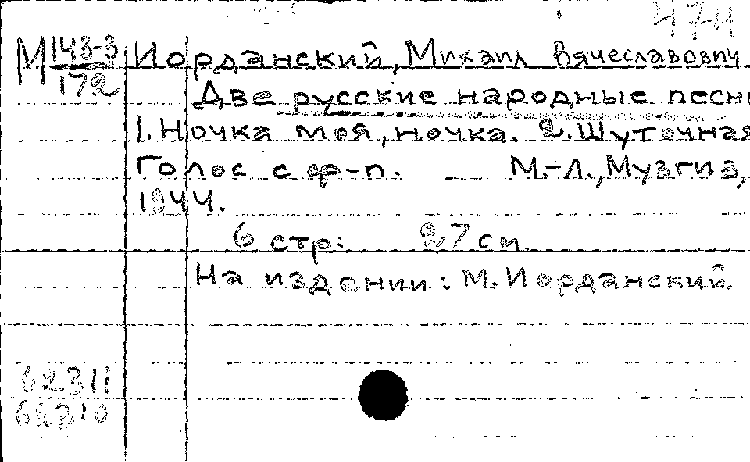 М 143-3/172
Иорданский, Михаил Вячеславович
Две русские народные песни
1. Ночка моя, ночка. 2. Шуточная
Голос с ф-п. М.-Л., Музгиз,
1944.
6 стр. 27 см
На издании: М. Иорданский.